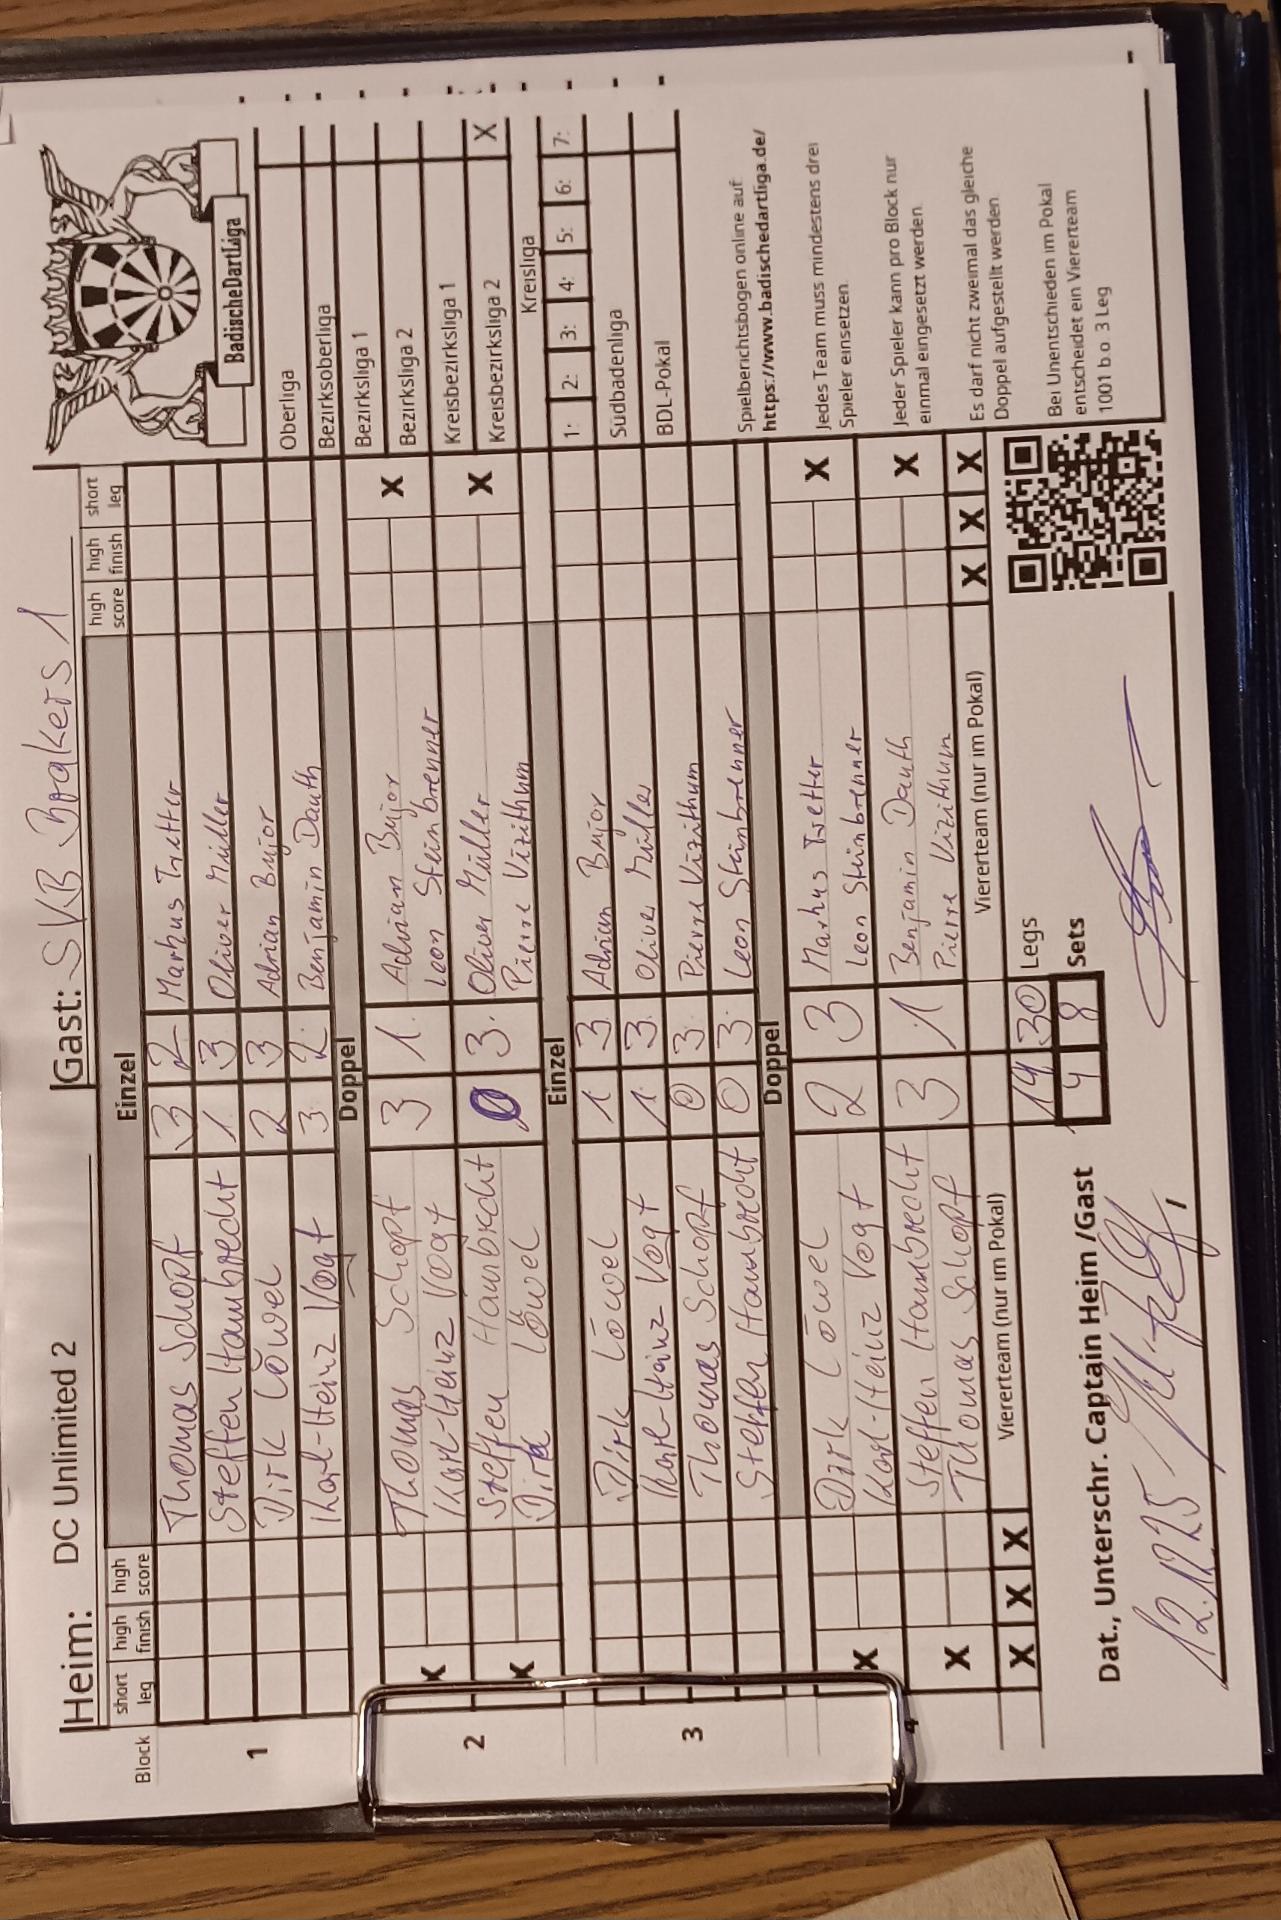 Heim: DC Unlimited 2 Gast: SVB Bogkers 1
Block short leg high finish high score Einzel high score high finish short leg
1
Thomas Schopf 3 2 Markus Tretter
Steffen Hambrecht 1 3 Oliver Müller
Dirk Löwel 2 3 Adrian Bujor
Karl-Heinz Vogt 3 2 Benjamin Dauth
Doppel
2
Thomas Schopf 3 1 Adrian Bujor
X Karl-Heinz Vogt Leon Steinbrenner X
Steffen Hambrecht 0 3 Oliver Müller
X Dirk Löwel Pierre Vizithum X
Einzel
3
Dirk Löwel 1 3 Adrian Bujor
Karl-Heinz Vogt 1 3 Oliver Müller
Thomas Schopf 0 3 Pierre Vizithum
Steffen Hambrecht 0 3 Leon Steinbrenner
Doppel
4
Dirk Löwel 2 3 Markus Tretter
X Karl-Heinz Vogt Leon Steinbrenner X
Steffen Hambrecht 3 1 Benjamin Dauth
X Thomas Schopf Pierre Vizithum X
X X X Viererteam (nur im Pokal) Viererteam (nur im Pokal) X X X
19 30 Legs
4 8 Sets
Dat., Unterschr. Captain Heim /Gast
12.12.25
BadischeDartLiga
Oberliga
Bezirksoberliga
Bezirksliga 1
Bezirksliga 2
Kreisbezirksliga 1
Kreisbezirksliga 2 X
Kreisliga
1: 2: 3: 4: 5: 6: 7:
Südbadenliga
BDL-Pokal
Spielberichtsbogen online auf
https://www.badischedartliga.de/
Jedes Team muss mindestens drei
Spieler einsetzen.
Jeder Spieler kann pro Block nur
einmal eingesetzt werden.
Es darf nicht zweimal das gleiche
Doppel aufgestellt werden
Bei Unentschieden im Pokal
entscheidet ein Viererteam
1001 b o 3 Leg